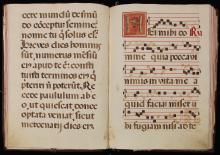 cere mundū de īmū
do cōceptū semine
homo? tu q̄ solus es?
Breves dies homini
sūt, numerus mēsiū
eius apud te ē: consti
tuisti terminos ei⁹
qui preteriri nō poterūt. Re
cede paululum ab e
o, ut quiescat donec
optata veniat, sicut
mercenarij dies ei⁹.
Ei mihi do
mine quia peccavi
nimis in vita me a
quid faciā miser u
bi fugiam nisi ad te